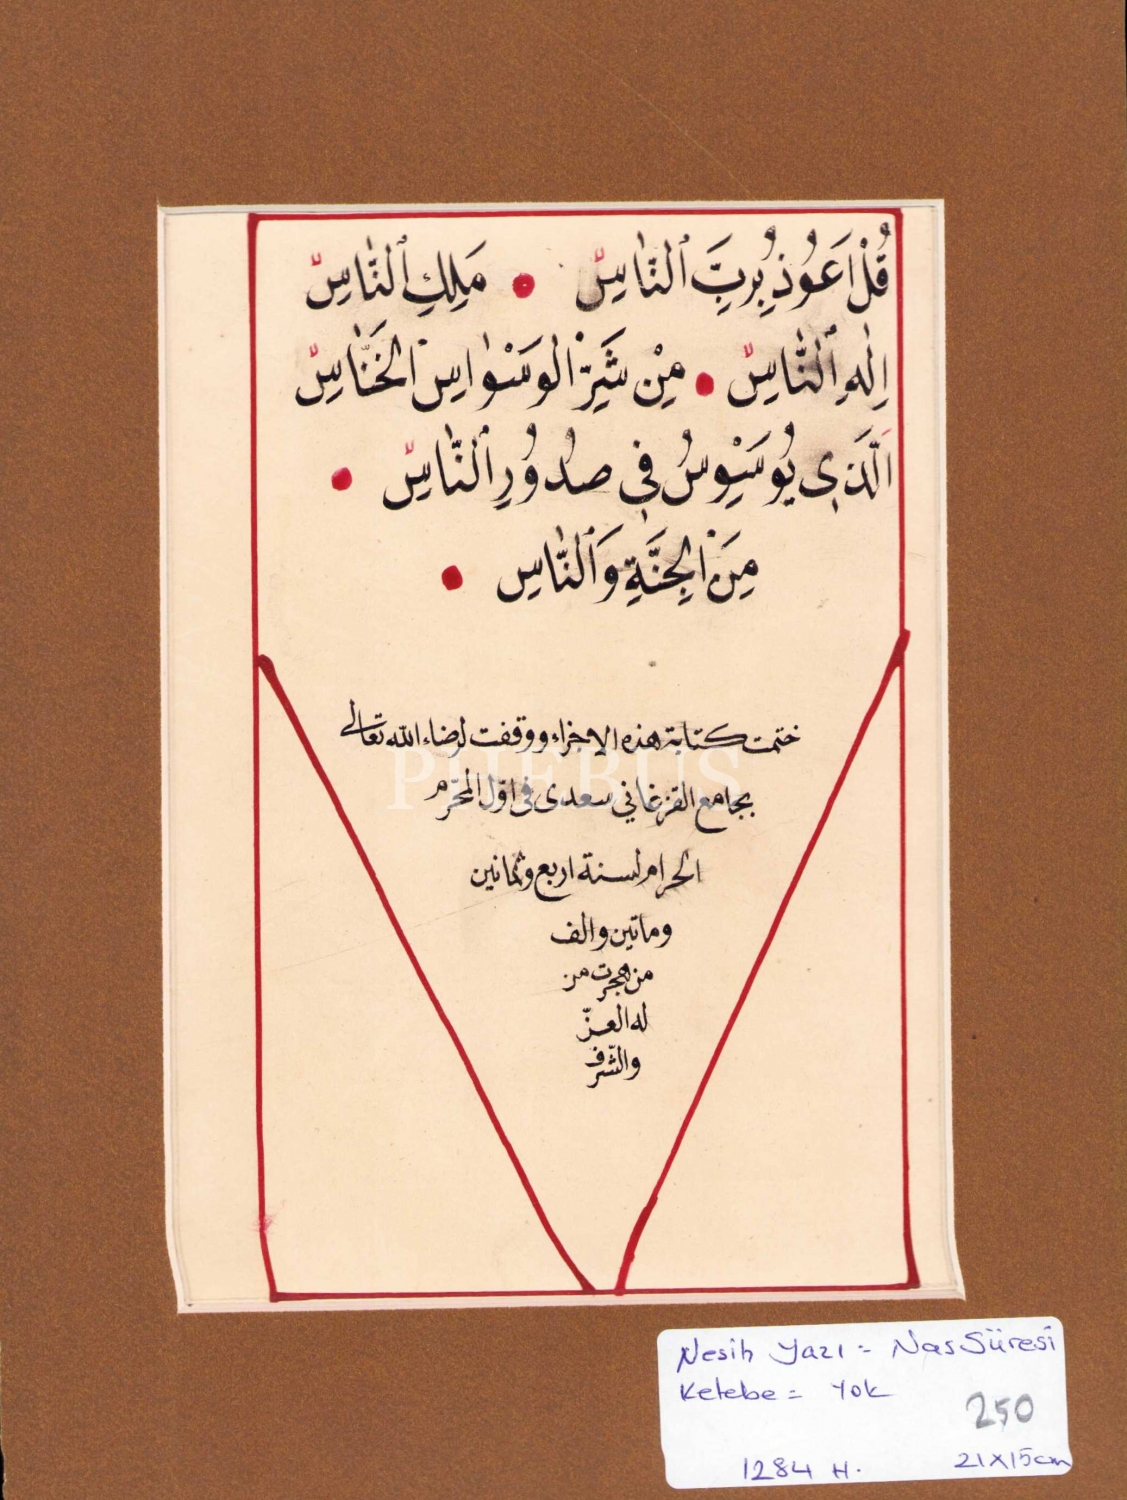 قُلْ اَعُوذُ بِرَبِّ ٱلنَّاسِّ مَلِكِ ٱلنَّاسِّ
اِلٰهِ ٱلنَّاسِّ مِنْ شَرِّ الوَسْوَاسِ الخَنَّاسِّ
اَلَّذِى يُوَسْوِسُ فِى صُدُورِ ٱلنَّاسِّ
مِنَ الجِنَّةِ وَٱلنَّاسِ
ختمت كتابة هذه الاجزاء ووقفت لرضاء الله تعالى
PHEBUS
بجامع القزغانى سعدى فى اوّل المحرّم
الحرام لسنة اربع وثمانين
وماتين والف
من هجرت من
له العزّ
والشّرف
Nesih Yazı = Nas Sûresi
Ketebe = Yok
250
1284 H. 21x15cm